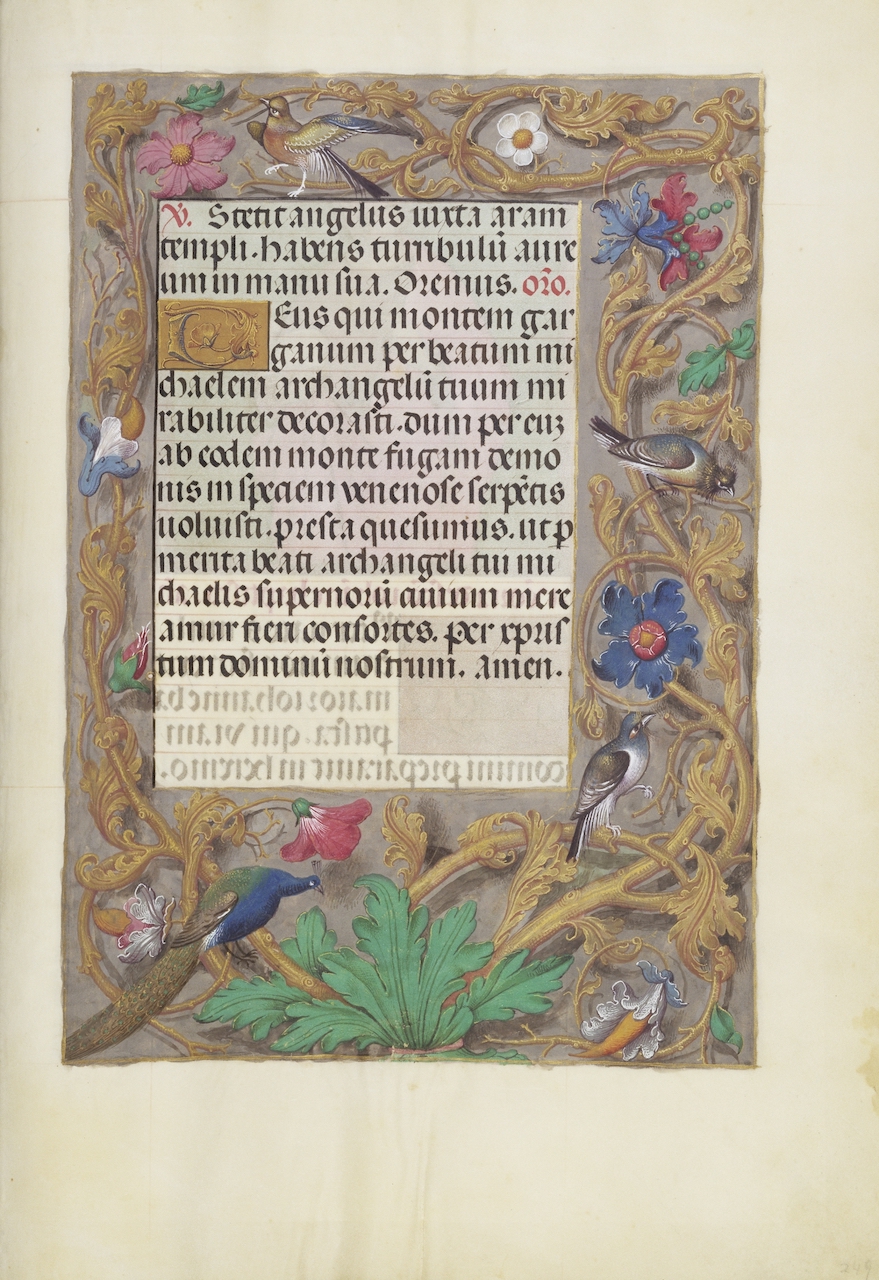 V. Stetit angelus iuxta aram
templi. habens turribulū aure
um in manu sua. Oremus. orō.
Eus qui montem gar
ganum per beatum mi
chaelem archangelū tuum mi
rabiliter decorasti. dum per eūꝫ
ab eodem monte fugam demo
nis in speciem venenose serpētis
uoluisti. presta quesumus. ut p
merita beati archangeli tui mi
chaelis supernorū ciuium mere
amur fieri consortes. per xpris
tum dominū nostrum. amen.